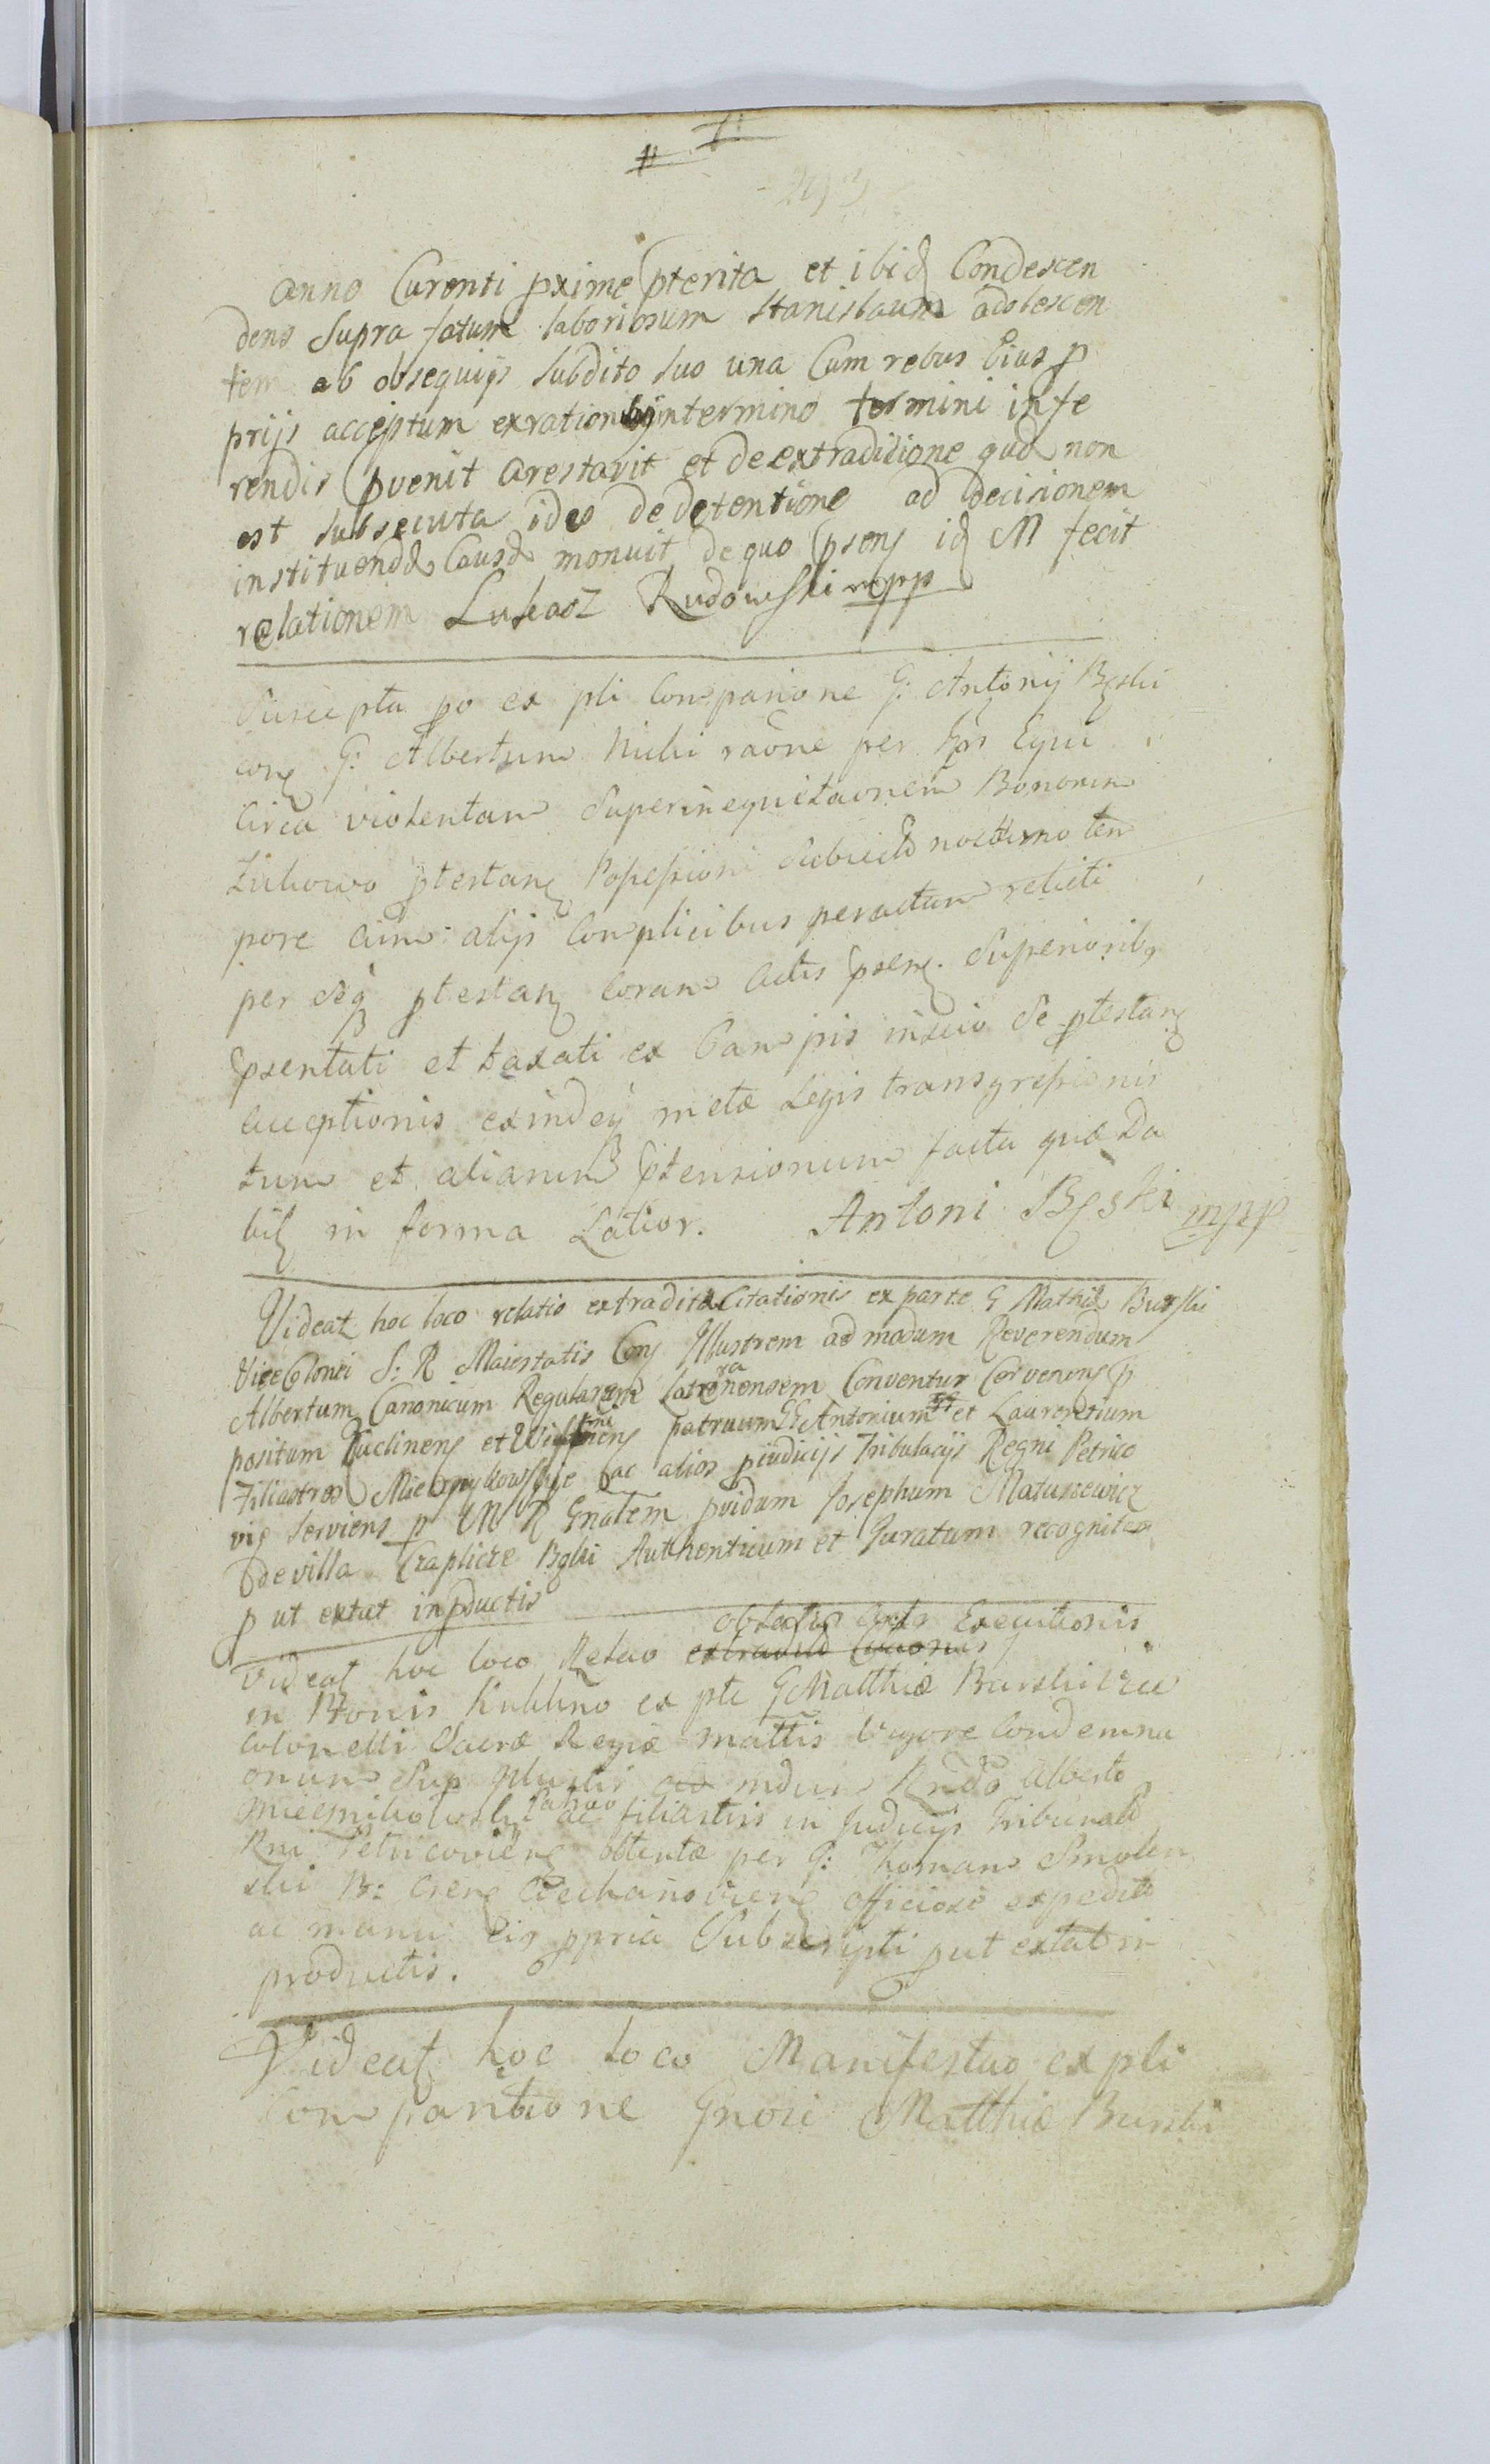 anno Curenti pxime pterita et ibid Condescen
dens Supra fatum laboriosum Stanislaum adolescen
tem ab obsequijs Subdito suo una Cum rebus Eius p
prijs acceptum exrationibq intermino termini infe
rendis pvenit arestavit et deextraditione quæ non
est subsecuta ideo dedetentione ad decisionem
instituendæ Causæ monuit de quo psens id M fecit
relationem Lukasz Rudowski mpp
Suscepta po ex pli Comparione G: Antonij Bęski
con G: Albertum raõne per
Circa violentam Superinequitaonem Bonorum
Żukowo ptestan Possessioni Subiectæ nocturno tem
pore cum alijs Complicibus peractam relicti
per Seq ptestan Coram Actis psen Superioribq
psentati et taxati ex Campis inscio Se ptestan
acceptionis exindeq metæ Legis transgressionis
tum et aliarum ptensionum facta quæ Da
bit in forma Latior. Antoni Bęski mpp
Videat hoc loco relatio extraditæ Citationis ex parte G Mathiæ Burski
Vice Colonei S: R Maiestatis Con Illustrem ad modum Reverendum
Albertum Canonicum Regularem Lateranensem Conventus Cervenens p
positum Kuclinens et patruum GG Antonium et Laurentium
Filiastros ac alios piudicijs Tribulacijs Regni Petrico
vie Serviens p M R Gnalem pvidum Josephum Matusiewicz
de villa Czaplice Bąki Authenticum et Juratum recognita
p ut extat inpductis
oblatio Executionis
Videat hoc loco Relao extraditæ Citaonis
in Bonis ex pte G Matthiæ Burski Vice
Colonelli Sacræ Regiæ Mattis Vigore Condemna
onum Sup Rndo Alberto
Patruo ac filiastris in Judicijs Tribunalis
Rni Petricovien obtentæ per G: Thomam Smolen
ski B: Cren Ciechanovien officiose expeditæ
ac manu Eiq ppria Subscripti put extat in
productis.
Videat hoc loco Manifestao ex pli
Comparitione Gnosi Matthiæ Burski